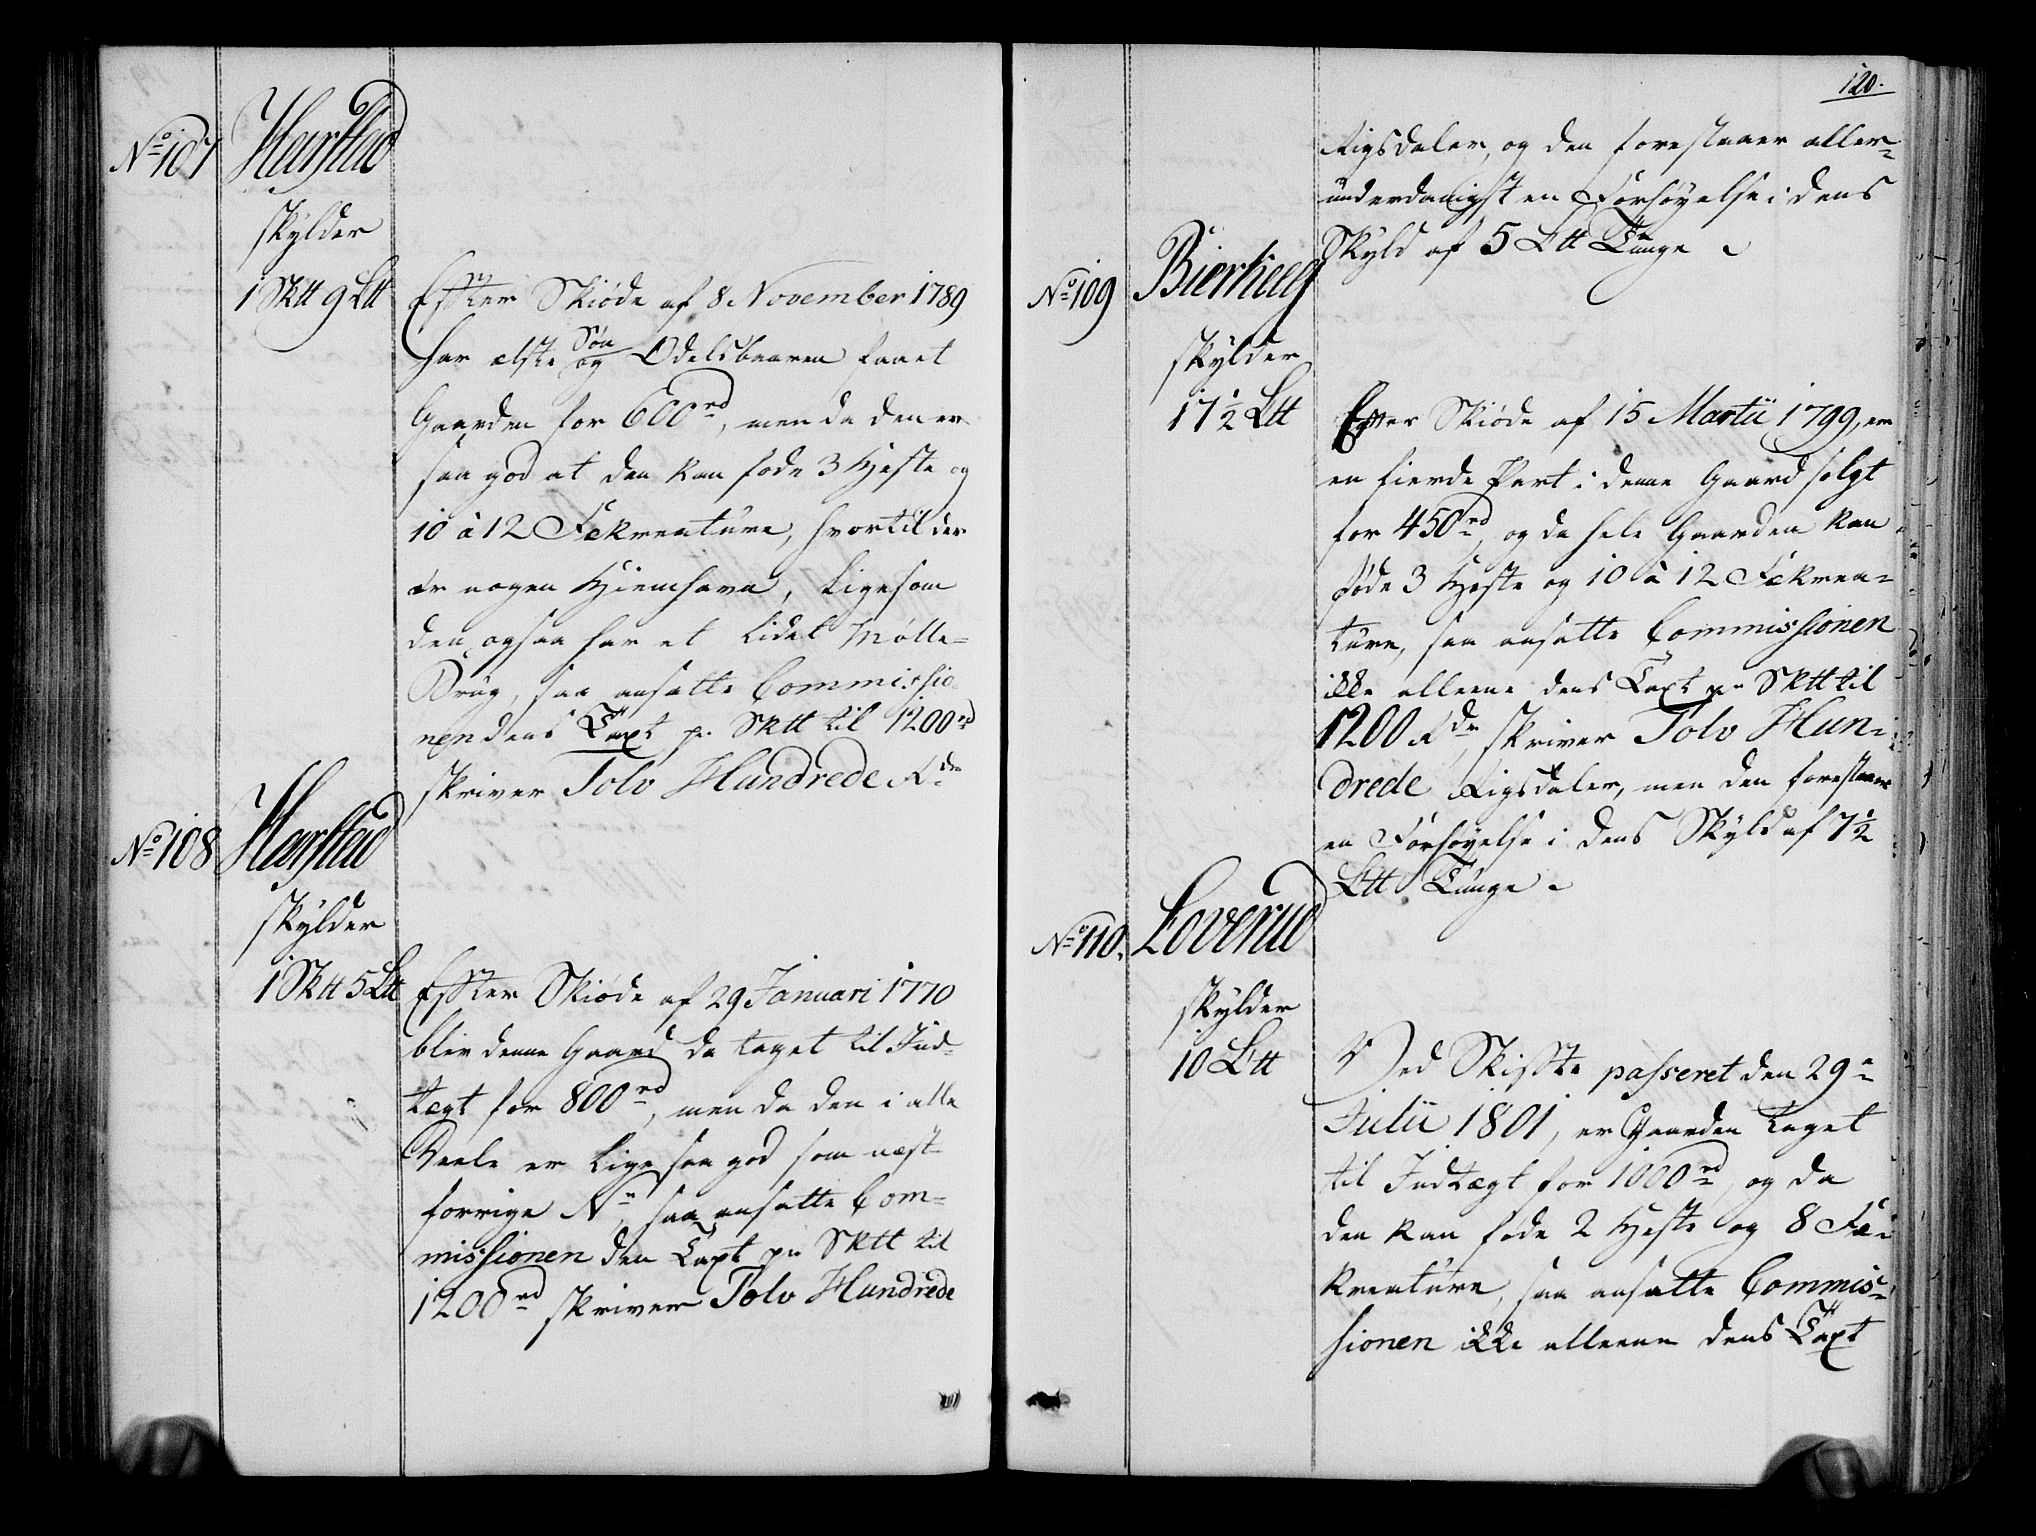 No 107
Harstad
skylder
1 Sktt 9 Ltt
Efter Skiöde af 8 November 1789
har ælste Søn og Odelsbaaren faaet
Gaarden for 600 rd, men da den er
saa god at den kan føde 3 Heste og
10 à 12 Fækreature, hvortil der
er nogen Hiemhavn, ligesom
den ogsaa har et lidet Mølle-
Brug, saa ansatte Commissio-
nen dens Taxt pr Sktt til 1200 rd
skriver Tolv Hundrede Rdr
No 108
Harstad
skylder
1 Sktt 5 Ltt
Efter Skiöde af 29 Januari 1770
blev denne Gaard da taget til Ind-
tægt for 800 rd, men da den i alle
Deele er lige saa god som næst
forrige No, saa ansatte Com-
missionen den Taxt pr Sktt til
1200 rd skriver Tolv Hundrede
120.
Rigsdaler, og den forestaaer aller-
underdanigst en Forhöyelse i dens
Skyld af 5 Ltt Tunge
No 109
Bierkeeg
skylder
17½ Ltt
Efter Skiöde af 15 Martii 1799, er
en fierde Part i denne Gaard solgt
for 450 rd, og da hele Gaarden kan
føde 3 Heste og 10 à 12 Fækrea-
ture, saa ansatte Commissionen
ikke alleene dens Taxt pr Sktt til
1200 Rdr, skriver Tolv Hun-
drede Rigsdaler, men den forestaaer
en Forhöyelse i dens Skyld af 7½
Ltt Tunge
No 110.
Loverud
skylder
10 Ltt
Ved Skifte passeret den 29e
Julii 1801, er Gaarden taget
til Indtægt for 1000 rd, og da
den kan føde 2 Heste og 8 Fæ-
kreature, saa ansatte Commis-
sionen ikke alleene dens Taxt